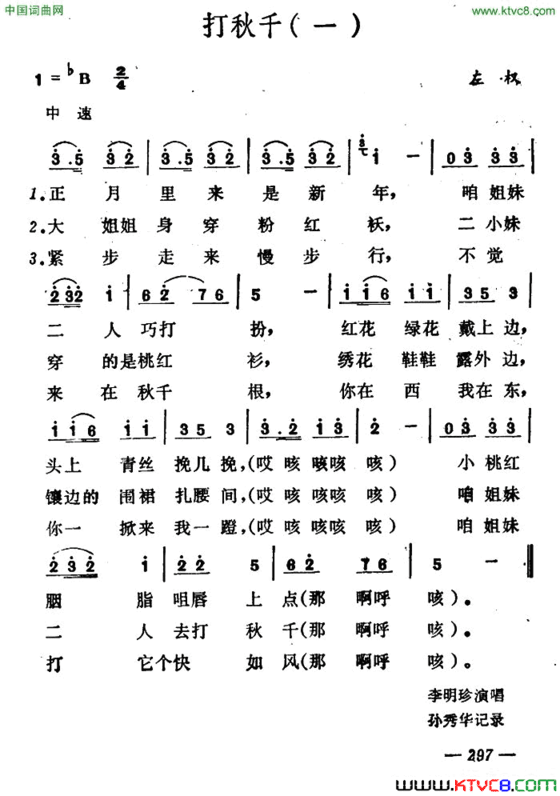 中国词曲网
www.ktvc8.com
打秋千（一）
1=♭B 2/4
左权
中速
3.5 3 2 | 3.5 3 2 | 3.5 3 2 | 1 — | 0 3 3 3 |
1.正月里来是新年，咱姐妹
2.大姐姐身穿粉红袄，二小妹
3.紧步走来慢步行，不觉
2 3 2 1 | 6 2 7 6 | 5 — | 1 1 6 1 1 6 | 3 5 3 |
二人巧打扮，红花绿花戴上边，
穿的是桃红衫，绣花鞋鞋露外边，
来在秋千根，你在西我在东，
1 1 6 1 1 | 3 5 3 | 3.2 1 3 | 2 — | 0 3 3 3 |
头上青丝挽几挽，(哎咳咳咳咳）小桃红
镶边的围裙扎腰间，(哎咳咳咳咳）咱姐妹
你一掀来我一蹬，(哎咳咳咳咳）咱姐妹
2 3 2 1 | 2 5 | 6 2 7 6 | 5 — ‖
胭脂咀唇上点(那啊呼咳）。
二人去打秋千(那啊呼咳）。
打它个快如风(那啊呼咳）。
李明珍演唱
孙秀华记录
— 297 —
www.KTVC8.com